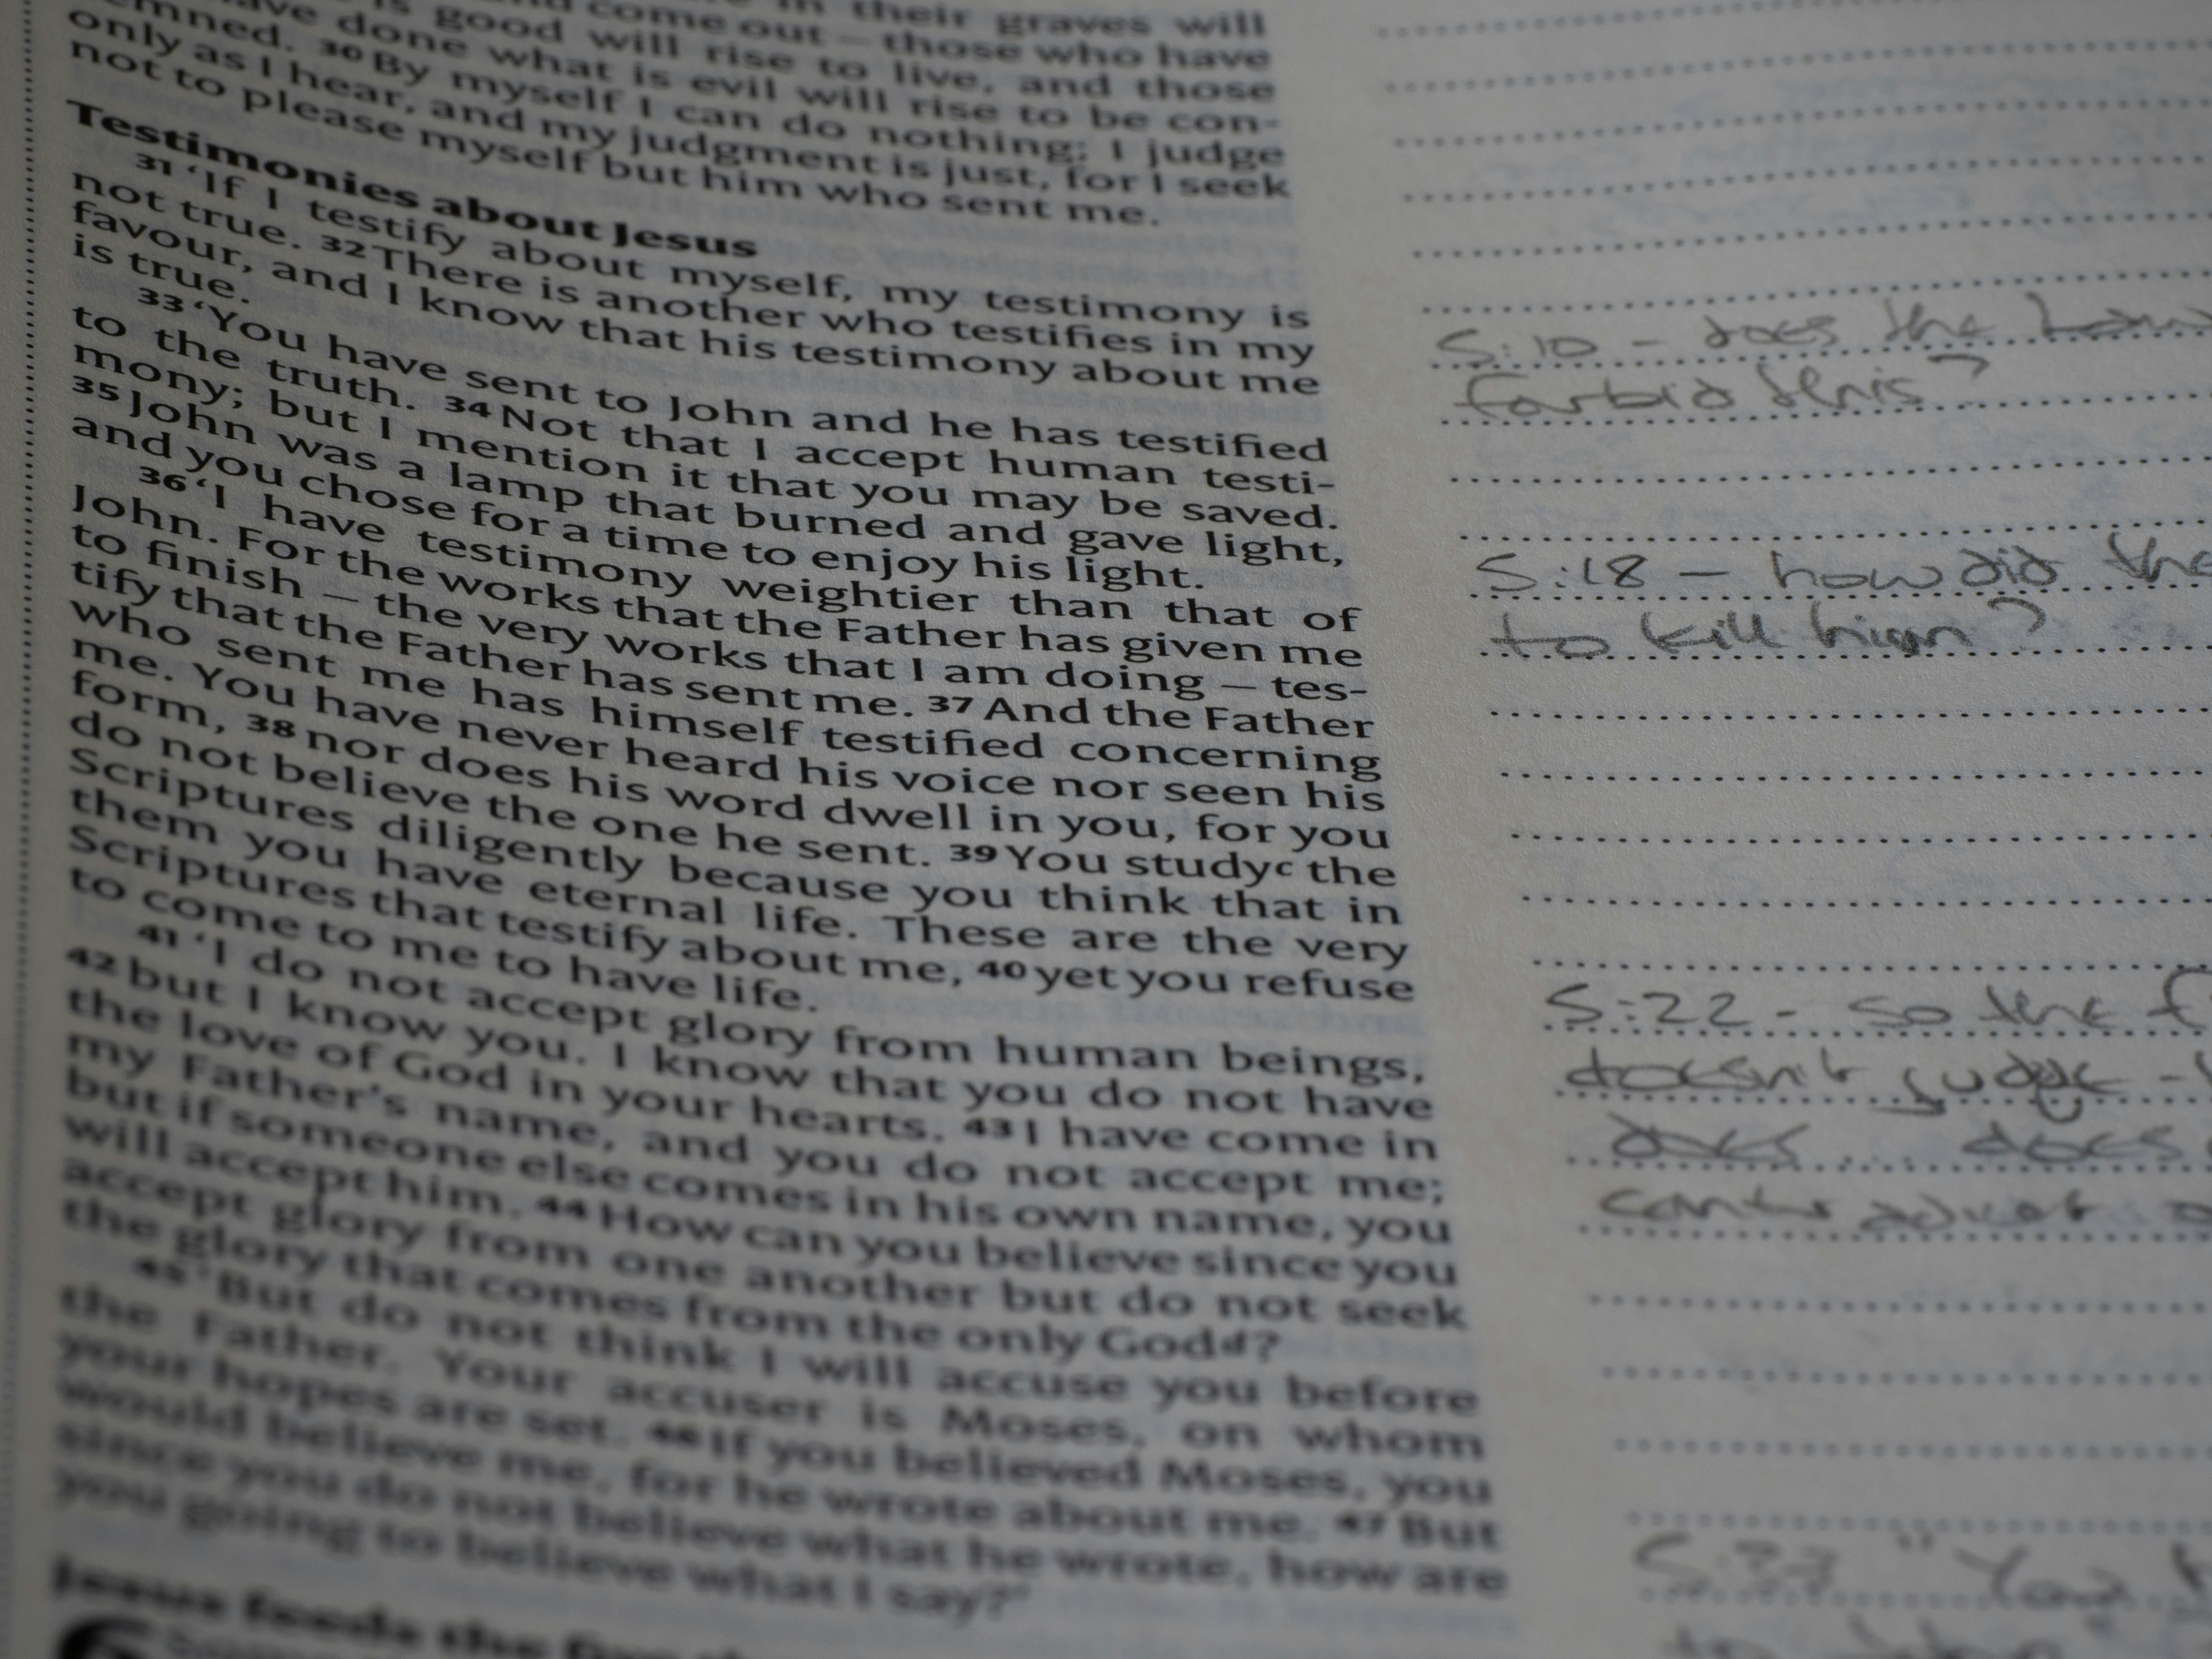 in their graves will
come out – those who have
is good will rise to live, and those
have done what is evil will rise to be con-
emned. 30 By myself I can do nothing; I judge
only as I hear, and my judgment is just, for I seek
not to please myself but him who sent me.
Testimonies about Jesus
31 ‘If I testify about myself, my testimony is
not true. 32 There is another who testifies in my
favour, and I know that his testimony about me
is true.
33 ‘You have sent to John and he has testified
to the truth. 34 Not that I accept human testi-
mony; but I mention it that you may be saved.
35 John was a lamp that burned and gave light,
and you chose for a time to enjoy his light.
36 ‘I have testimony weightier than that of
John. For the works that the Father has given me
to finish – the very works that I am doing – tes-
tify that the Father has sent me. 37 And the Father
who sent me has himself testified concerning
me. You have never heard his voice nor seen his
form, 38 nor does his word dwell in you, for you
do not believe the one he sent. 39 You study c the
Scriptures diligently because you think that in
them you have eternal life. These are the very
Scriptures that testify about me, 40 yet you refuse
to come to me to have life.
41 ‘I do not accept glory from human beings,
42 but I know you. I know that you do not have
the love of God in your hearts. 43 I have come in
my Father’s name, and you do not accept me;
but if someone else comes in his own name, you
will accept him. 44 How can you believe since you
accept glory from one another but do not seek
the glory that comes from the only God d?
45 ‘But do not think I will accuse you before
the Father. Your accuser is Moses, on whom
your hopes are set. 46 If you believed Moses, you
would believe me, for he wrote about me. 47 But
since you do not believe what he wrote, how are
you going to believe what I say?’
Jesus feeds the five
6
5:10 - does the
forbid this?
5:18 - how did the
to kill him?
5:22 - so the f
doesn't judge -
does does
5:33 "You